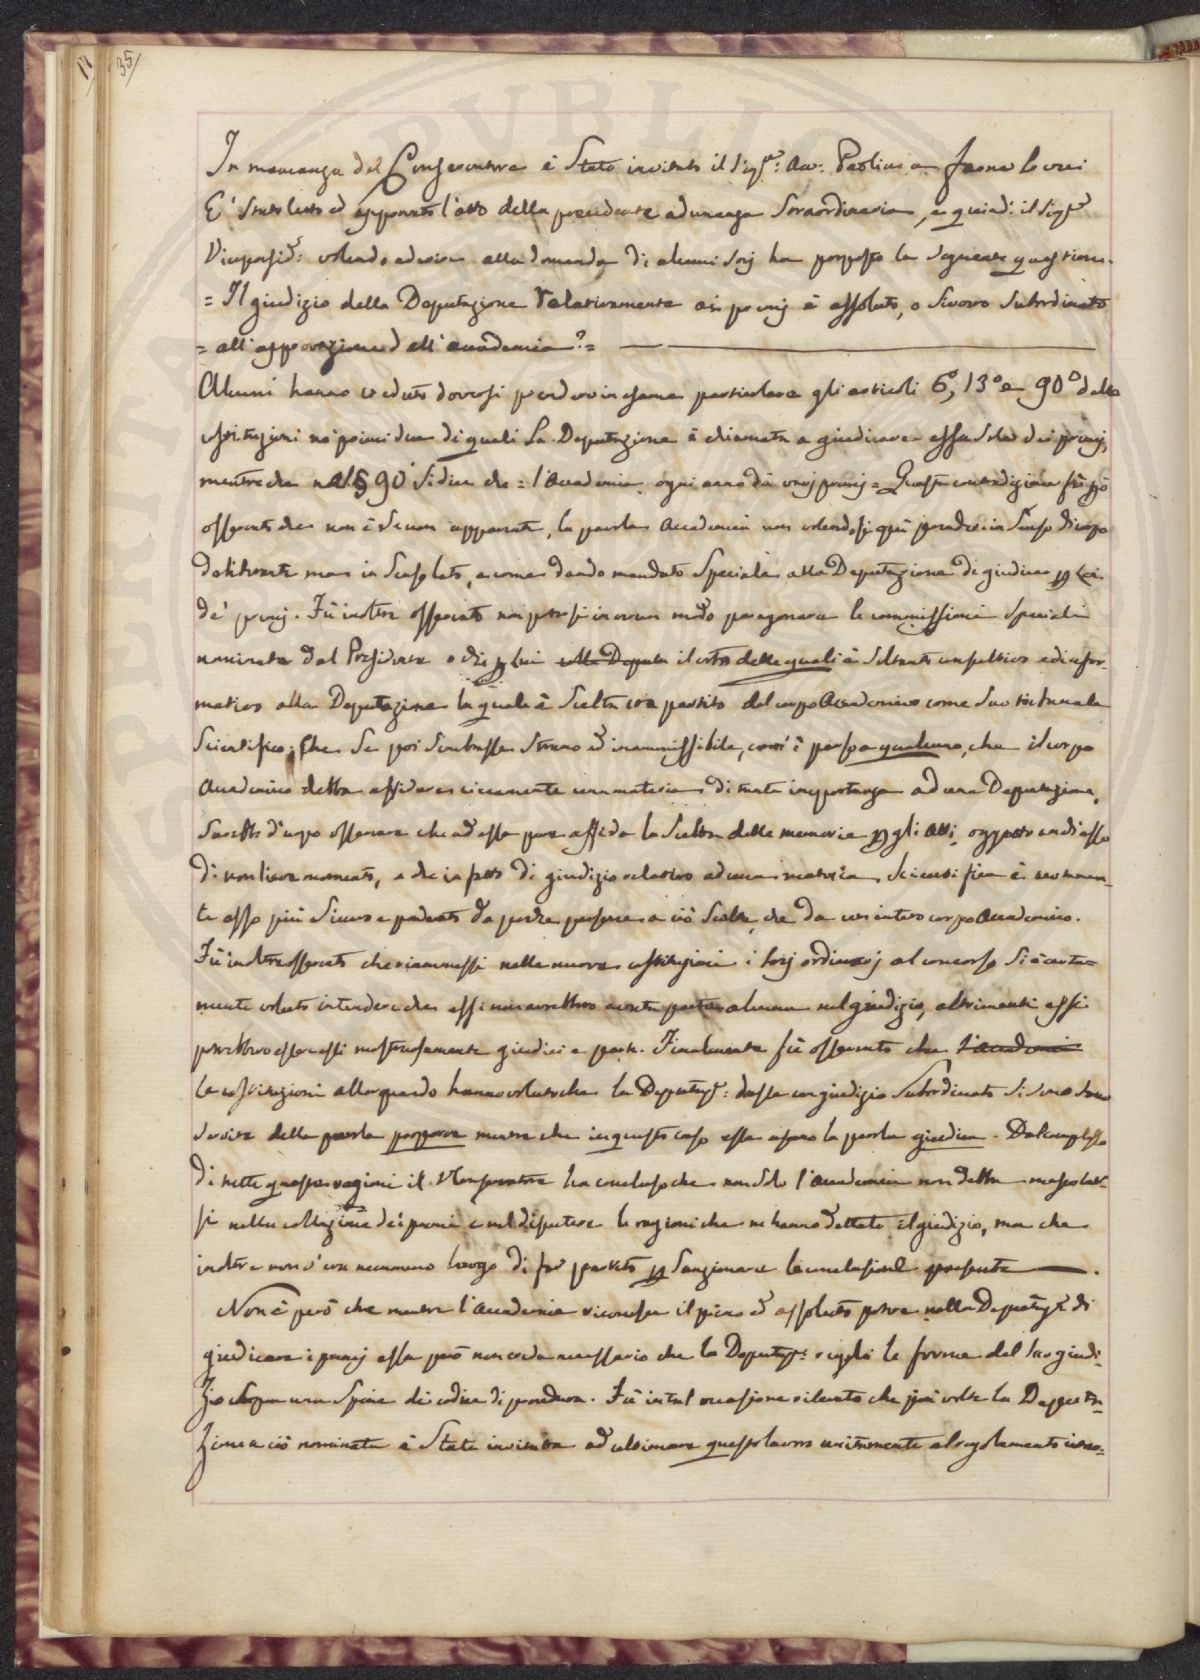 35/
In mancanza del Conservatore è Stato invitato il Sig.re Avv. Paolini a farne le veci
E' Stato letto ed approvato l'atto della precedente adunanza Straordinaria, e quindi il Sig.re
Vicepresid.e volendo aderire alla domanda di alcuni Socj ha proposto la Seguente questione.
= Il giudizio della Deputazione relativamente ai premj è assoluto, o Sivvero Subordinato
= all'approvazione dell'accademia? =
Alcuni hanno creduto doversi prendere in esame particolare gli articoli 6°, 13° e 90° delle
costituzioni ne' primi due de' quali La Deputazione è chiamata a giudicare essa Sola dei premj,
mentre che nel § 90 Si dice che = l'Accademia ogni anno dà varj premj = Questa contradizione fù poi
osservato che non è Se non apparente, la parola Accademia non volendosi quì prendere in Senso di corpo
deliberante ma in Senso lato, e come dando mandato Speciale alla Deputazione di giudicare per Lei
de' premj. Fù inoltre osservato non potersi in verun modo paragonare le commissioni Speciali
nominate dal Presidente o chi per Lui alla Deputa il voto delle quali è Soltanto consultivo ed infor-
mativo alla Deputazione la quale è Scelta con partito dal corpo Accademico come Suo tribunale
Scientifico; Che Se poi Sembrasse Strano ed inammissibile, come è parso a qualcuno, che il corpo
Accademico debba affidare ciecamente una materia di tanta importanza ad una Deputazione,
Sarebbe d'uopo osservare che ad essa pure affida la Scelta delle memorie per gli Atti, oggetto anch'esso
di non lieve momento, e che in fatto di giudizio relativo ad una materia Scientifica è veramen-
te assai più Sicuro e prudente da poche persone a ciò Scelte, che da un intero corpo Accademico.
Fù inoltre osservato che riammessi nelle nuove costituzioni i Socj ordinarj al concorso Si è certa-
mente voluto intendere che essi non avrebbero avuta parte alcuna nel giudizio, altrimenti essi
potrebbero essere essi mostruosamente giudici e parte. Finalmente fù osservato che l'accademia
le costituzioni allorquando hanno voluto che la Deputaz.e desse un giudizio Subordinato Si Sono Sono
Servite della parola proporre mentre che in questo caso esse usano la parola giudica. Dal complesso
di tutte queste ragioni il Conservatore ha concluso che non Solo l'Accademia non debba mescolar-
si nella collazione de' premi e nel disputare le ragioni che ne hanno dettato il giudizio, ma che
inoltre non v'era nemmeno luogo di far partito per Sanzionare la conclusione proposta.
Non è però che mentre l'Accademia riconosce il pieno ed assoluto potere nella Deputaz.e di
giudicare i premj essa però non creda necessario che la Deputaz.e regoli le forme del Suo giudi-
zio Sopra una Spezie di codice di procedura. Fù in tal occasione rilevato che più volte la Deputa-
zione a ciò nominata è Stata invitata ad ultimare questo lavoro unitamente al regolamento inter-